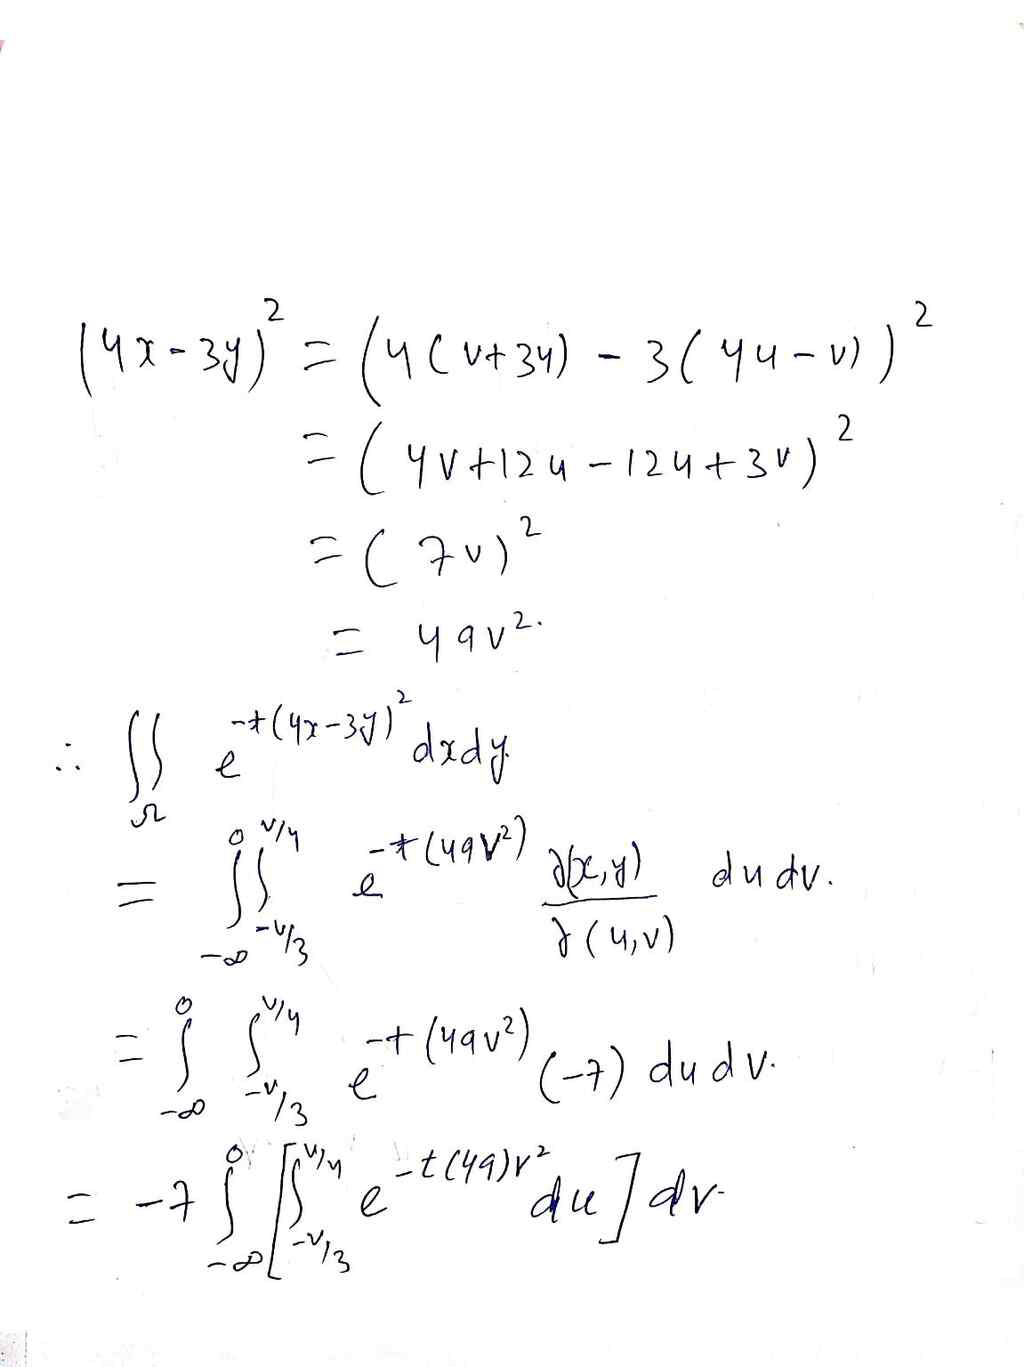 (4x-3y)² = (4(v+3u) - 3(4u-v))²
= (4v+12u-12u+3v)²
= (7v)²
= 49v².
∴ ∬_Ω e^{-t(4x-3y)²} dxdy.
= ∫_{-∞}^{0} ∫_{-v/3}^{v/4} e^{-t(49v²)} ∂(x,y)/∂(u,v) du dv.
= ∫_{-∞}^{0} ∫_{-v/3}^{v/4} e^{-t(49v²)} (-7) du dv.
= -7 ∫_{-∞}^{0} [∫_{-v/3}^{v/4} e^{-t(49)v²} du] dv.